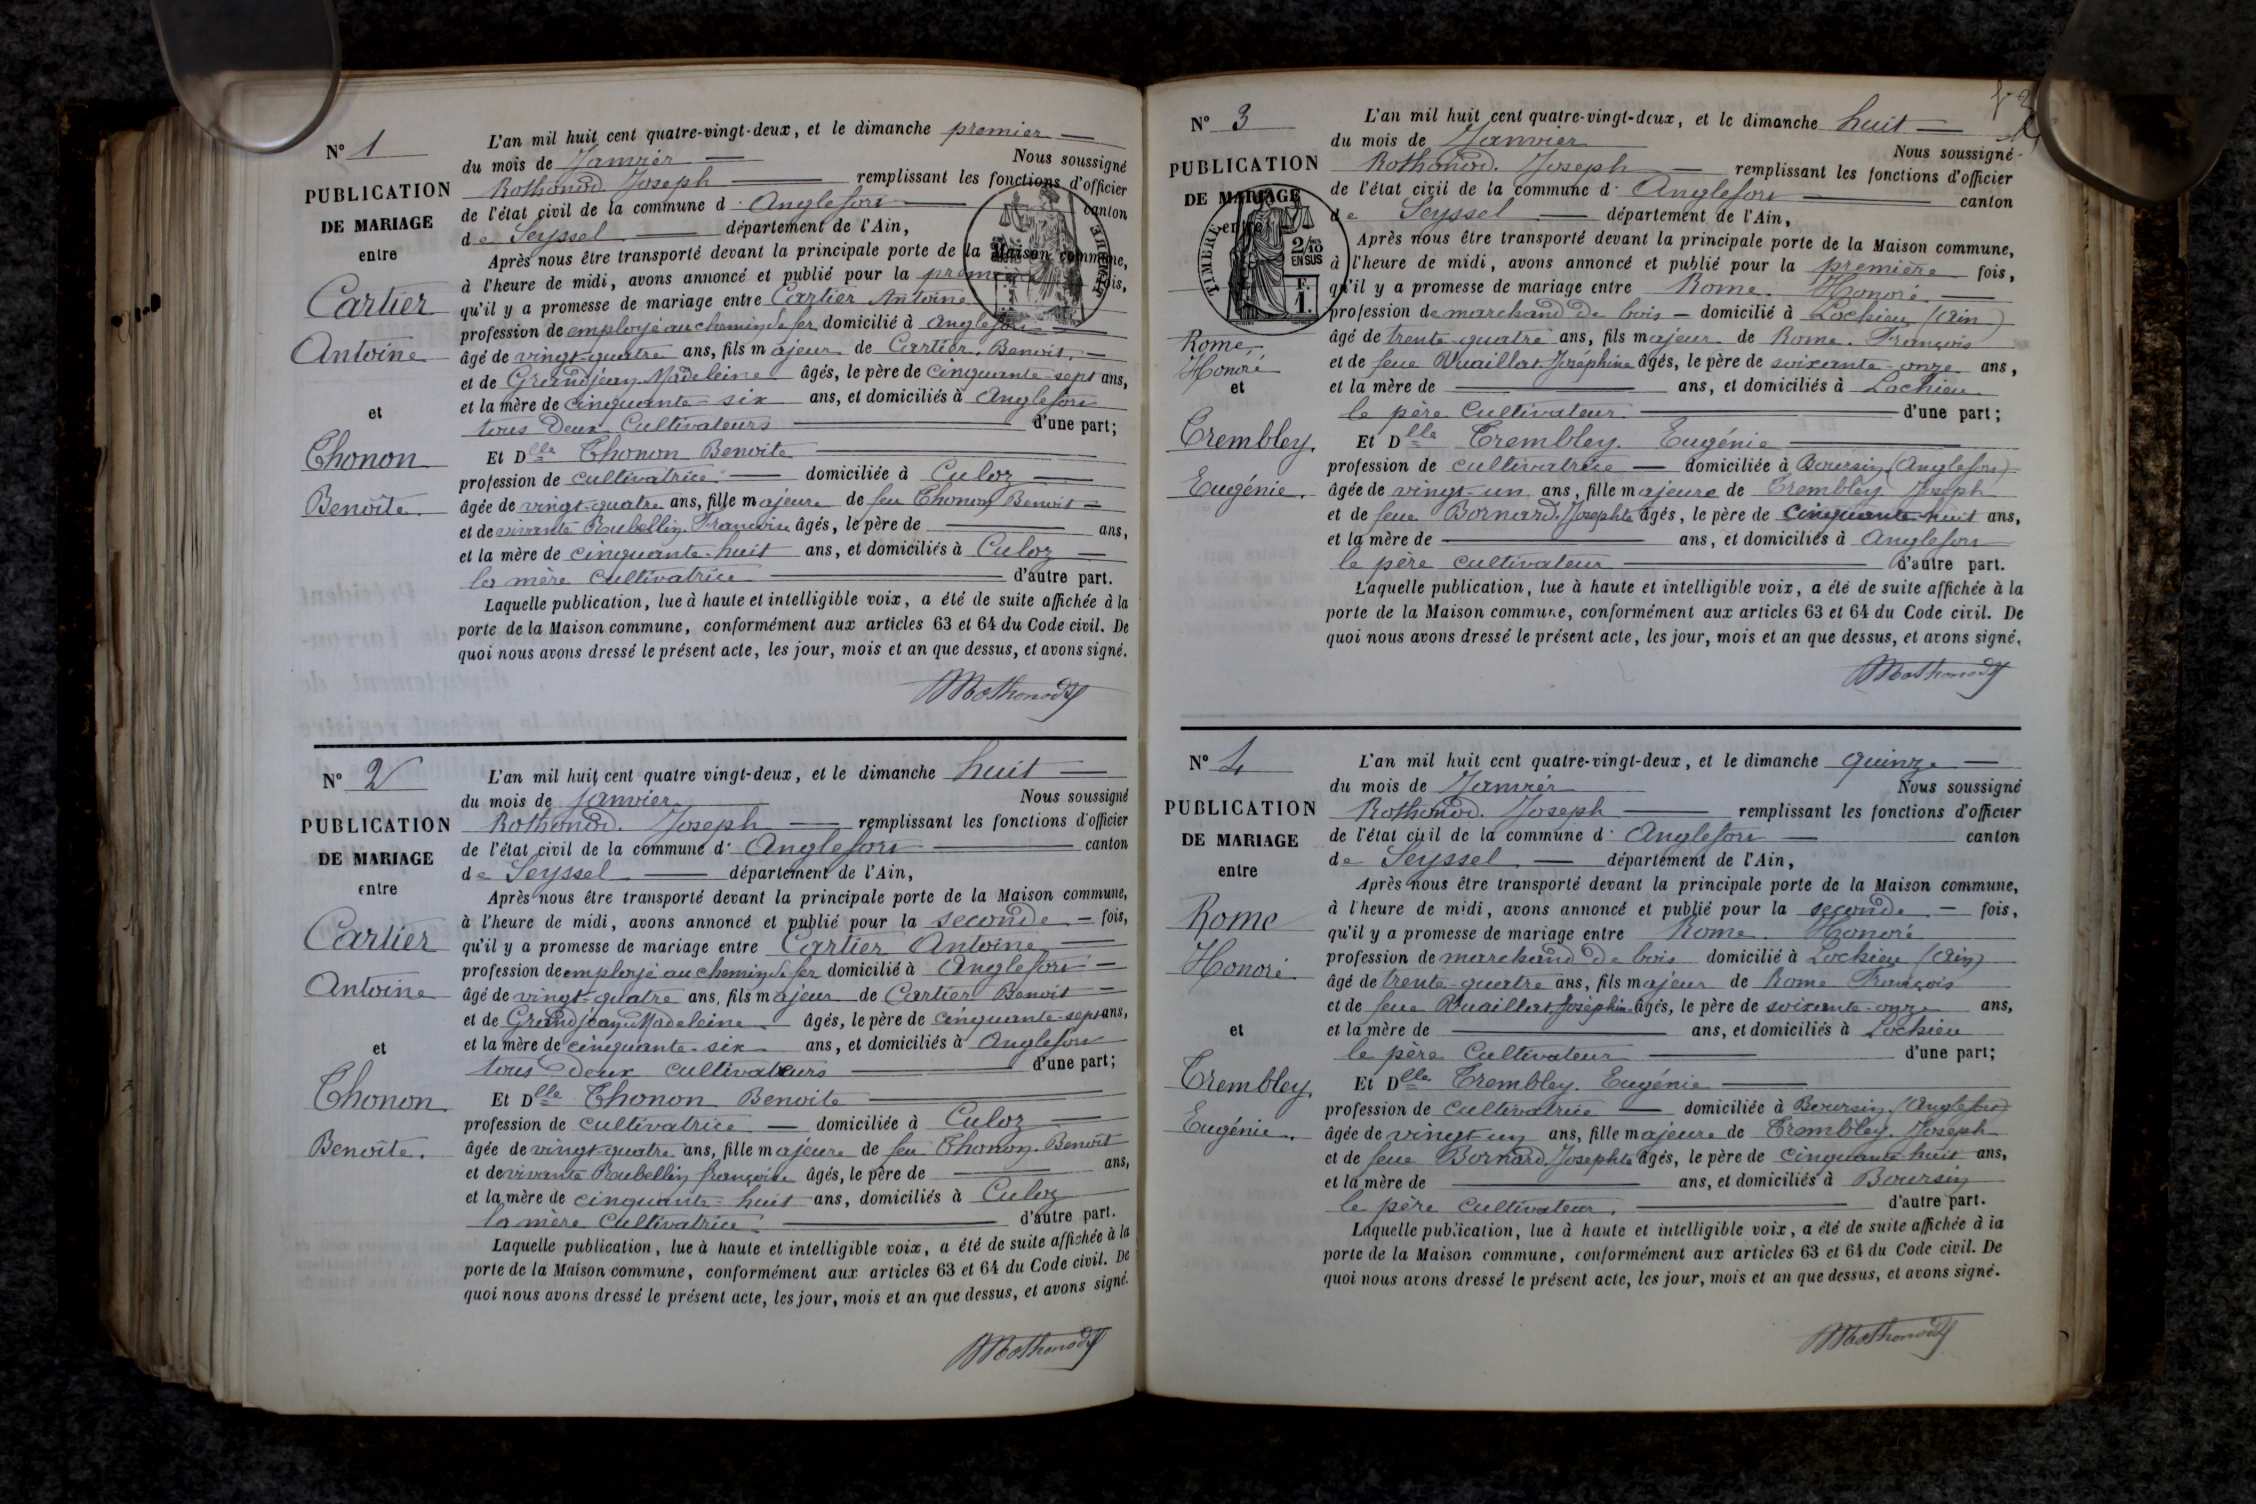 N° 1
PUBLICATION
DE MARIAGE
entre
Cartier
Antoine
et
Thonon
Benoîte.
L'an mil huit cent quatre-vingt-deux, et le dimanche premier
du mois de Janvier Nous soussigné
Rothonod Joseph remplissant les fonctions d'officier
de l'état civil de la commune d' Anglefort canton
de Seyssel département de l'Ain,
Après nous être transporté devant la principale porte de la Maison commune,
à l'heure de midi, avons annoncé et publié pour la première fois,
qu'il y a promesse de mariage entre Cartier Antoine
profession de employé au chemin de fer domicilié à Anglefort
âgé de vingt-quatre ans, fils majeur de Cartier Benoit
et de Grandjean Madeleine âgés, le père de cinquante-sept ans,
et la mère de cinquante-six ans, et domiciliés à Anglefort
tous deux Cultivateurs d'une part;
Et Dlle Thonon Benoite
profession de cultivatrice domiciliée à Culoz
âgée de vingt-quatre ans, fille majeure de feu Thonon Benoit
et de vivante Roubellin Francoise âgés, le père de ans,
et la mère de cinquante-huit ans, et domiciliés à Culoz
la mère cultivatrice d'autre part.
Laquelle publication, lue à haute et intelligible voix, a été de suite affichée à la
porte de la Maison commune, conformément aux articles 63 et 64 du Code civil. De
quoi nous avons dressé le présent acte, les jour, mois et an que dessus, et avons signé.
Rothonod
N° 2
PUBLICATION
DE MARIAGE
entre
Cartier
Antoine
et
Thonon
Benoîte.
L'an mil huit cent quatre vingt-deux, et le dimanche huit
du mois de Janvier Nous soussigné
Rothonod Joseph remplissant les fonctions d'officier
de l'état civil de la commune d' Anglefort canton
de Seyssel département de l'Ain,
Après nous être transporté devant la principale porte de la Maison commune,
à l'heure de midi, avons annoncé et publié pour la seconde fois,
qu'il y a promesse de mariage entre Cartier Antoine
profession de employé au chemin de fer domicilié à Anglefort
âgé de vingt-quatre ans, fils majeur de Cartier Benoit
et de Grandjean Madeleine âgés, le père de cinquante-sept ans,
et la mère de cinquante-six ans, et domiciliés à Anglefort
tous deux cultivateurs d'une part;
Et Dlle Thonon Benoite
profession de cultivatrice domiciliée à Culoz
âgée de vingt-quatre ans, fille majeure de feu Thonon Benoit
et de vivante Roubellin françoise âgés, le père de ans,
et la mère de cinquante-huit ans, domiciliés à Culoz
la mère Cultivatrice d'autre part.
Laquelle publication, lue à haute et intelligible voix, a été de suite affichée à la
porte de la Maison commune, conformément aux articles 63 et 64 du Code civil. De
quoi nous avons dressé le présent acte, les jour, mois et an que dessus, et avons signé.
Rothonod
N° 3
PUBLICATION
DE MARIAGE
entre
TIMBRE
2/10
EN SUS
F.
1.
Rome
Honoré
et
Trembley
Eugénie.
L'an mil huit cent quatre-vingt-deux, et le dimanche huit
du mois de Janvier Nous soussigné
Rothonod. Joseph remplissant les fonctions d'officier
de l'état civil de la commune d' Anglefort canton
de Seyssel département de l'Ain,
Après nous être transporté devant la principale porte de la Maison commune,
à l'heure de midi, avons annoncé et publié pour la première fois,
qu'il y a promesse de mariage entre Rome. Honoré
profession de marchand de bois domicilié à Lochieu (Ain)
âgé de trente-quatre ans, fils majeur de Rome. François
et de feue Vuaillat Joséphine âgés, le père de soixante-onze ans,
et la mère de ans, et domiciliés à Lochieu
le père Cultivateur d'une part;
Et Dlle Trembley. Eugénie
profession de cultivatrice domiciliée à Boursin (Anglefort)
âgée de vingt-un ans, fille majeure de Trembley Joseph
et de feue Bornard Josephte âgés, le père de cinquante-huit ans,
et la mère de ans, et domiciliés à Anglefort
le père cultivateur d'autre part.
Laquelle publication, lue à haute et intelligible voix, a été de suite affichée à la
porte de la Maison commune, conformément aux articles 63 et 64 du Code civil. De
quoi nous avons dressé le présent acte, les jour, mois et an que dessus, et avons signé.
Rothonod
N° 4
PUBLICATION
DE MARIAGE
entre
Rome
Honoré
et
Trembley
Eugénie.
L'an mil huit cent quatre-vingt-deux, et le dimanche quinze
du mois de Janvier Nous soussigné
Rothonod. Joseph remplissant les fonctions d'officier
de l'état civil de la commune d' Anglefort canton
de Seyssel département de l'Ain,
Après nous être transporté devant la principale porte de la Maison commune,
à l'heure de midi, avons annoncé et publié pour la seconde fois,
qu'il y a promesse de mariage entre Rome. Honoré
profession de marchand de bois domicilié à Lochieu (Ain)
âgé de trente-quatre ans, fils majeur de Rome François
et de feue Vuaillat Joséphine âgés, le père de soixante-onze ans,
et la mère de ans, et domiciliés à Lochieu
le père Cultivateur d'une part;
Et Dlle Trembley. Eugénie
profession de cultivatrice domiciliée à Boursin (Anglefort)
âgée de vingt-un ans, fille majeure de Trembley. Joseph
et de feue Bornard Josephte âgés, le père de cinquante-huit ans,
et la mère de ans, et domiciliés à Boursin
le père cultivateur. d'autre part.
Laquelle publication, lue à haute et intelligible voix, a été de suite affichée à la
porte de la Maison commune, conformément aux articles 63 et 64 du Code civil. De
quoi nous avons dressé le présent acte, les jour, mois et an que dessus, et avons signé.
Rothonod